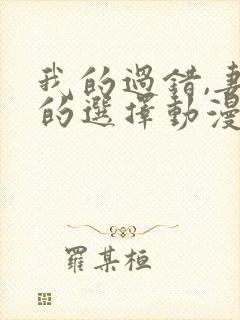 我的過錯,妻
的選擇動漫
羅某桓